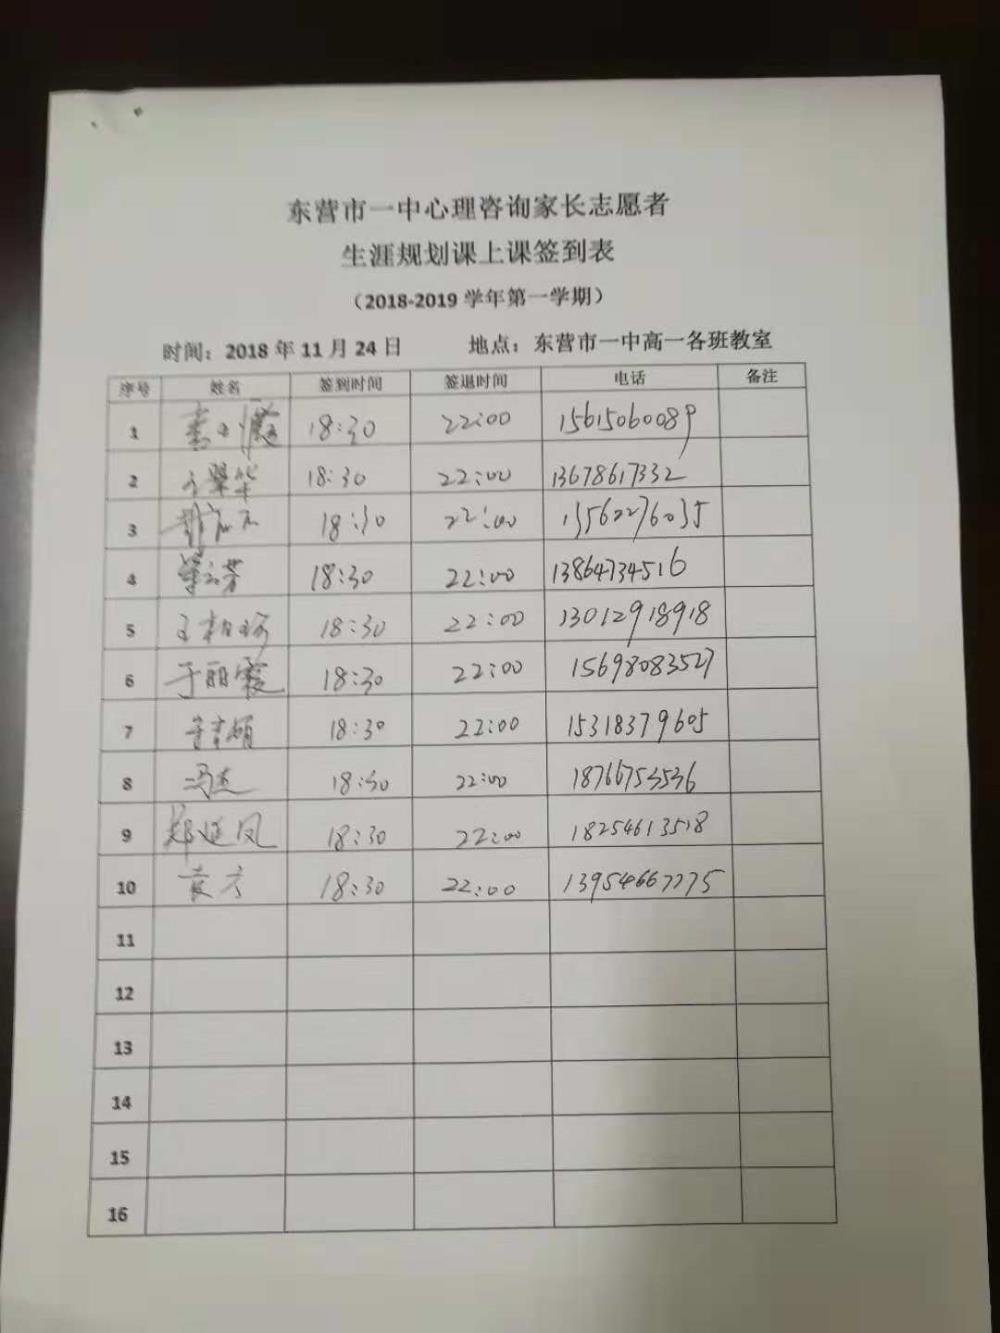 东营市一中心理咨询家长志愿者
生涯规划课上课签到表
（2018-2019 学年第一学期）
时间：2018 年 11 月 24 日 地点：东营市一中高一各班教室
序号 姓名 签到时间 签退时间 电话 备注
1 18:30 22:00 15615060089
2 18:30 22:00 13678617332
3 18:30 22:00 13562276035
4 18:30 22:00 13864734516
5 18:30 22:00 13012918918
6 于丽霞 18:30 22:00 15698083527
7 18:30 22:00 15318379605
8 冯杰 18:30 22:00 18766753536
9 郑延凤 18:30 22:00 18254613518
10 袁方 18:30 22:00 13954667775
11
12
13
14
15
16